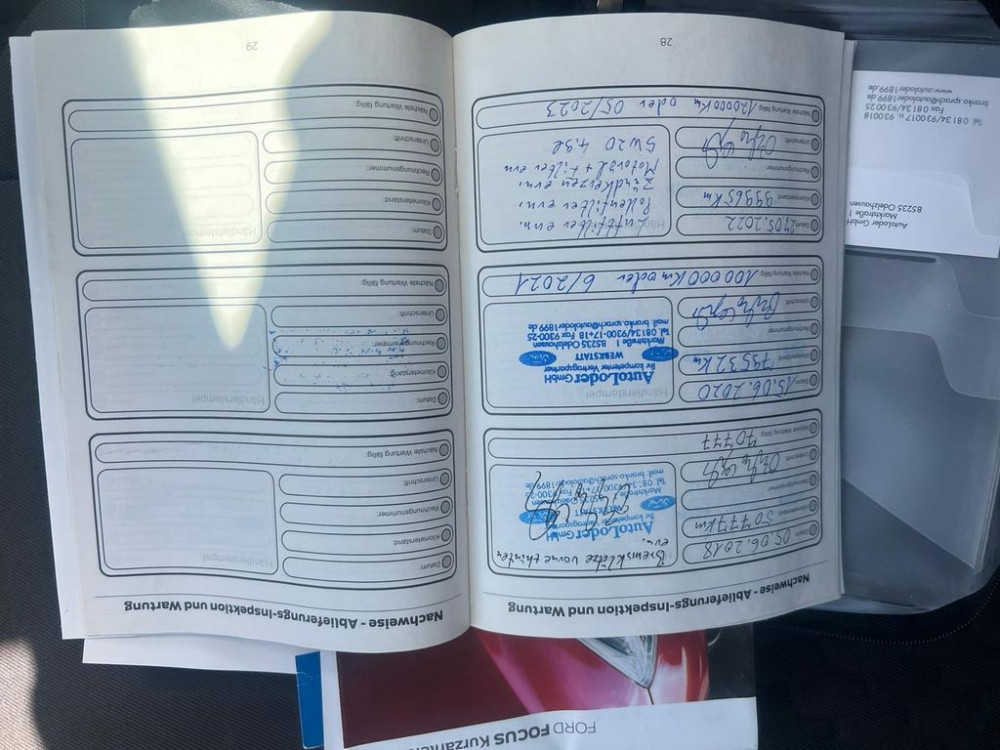 FORD FOCUS Kurzanle
Nachweise - Ablieferungs-Inspektion und Wartung
Datum: 05.06.2018
Kilometerstand: 50777km
Rechnungsnummer:
Unterschrift:
Nächste Wartung fällig: 70777
Bremsklötze vorne + hinten
ern.
AutoLoder GmbH
Ihr kompetenter Vertragspartner
WERKSTATT
Datum: 15.06.2020
Kilometerstand: 79532 Km
Rechnungsnummer:
Unterschrift:
Nächste Wartung fällig: 100000 Km oder 6/2021
Händlerstempel
AutoLoder GmbH
Ihr kompetenter Vertragspartner
WERKSTATT
Marktstraße 1 85235 Odelzhausen
Tel. 08134/9300-17+18 Fax 9300-25
mail: branko.sprach@autoloder1899.de
Datum: 24.05.2022
Kilometerstand: 99965 Km
Rechnungsnummer:
Unterschrift:
Nächste Wartung fällig: 120000 Km oder 05/2023
Luftfilter ern.
Pollenfilter ern.
Zündkerzen ern.
Motoröl + Filter ern
5W20 4,9l
28
Nachweise - Ablieferungs-Inspektion und Wartung
Datum:
Kilometerstand:
Rechnungsnummer:
Unterschrift:
Nächste Wartung fällig:
Händlerstempel
Datum:
Kilometerstand:
Rechnungsnummer:
Unterschrift:
Nächste Wartung fällig:
Händlerstempel
Datum:
Kilometerstand:
Rechnungsnummer:
Unterschrift:
Nächste Wartung fällig:
Händlerstempel
29
Autoloder GmbH
Marktstraße 1
85235 Odelzhausen
Tel. 081 34/93 0017 u. 93 0018
Fax 081 34/93 00 25
branko.sprach@autoloder1899.de
www.autoloder1899.de